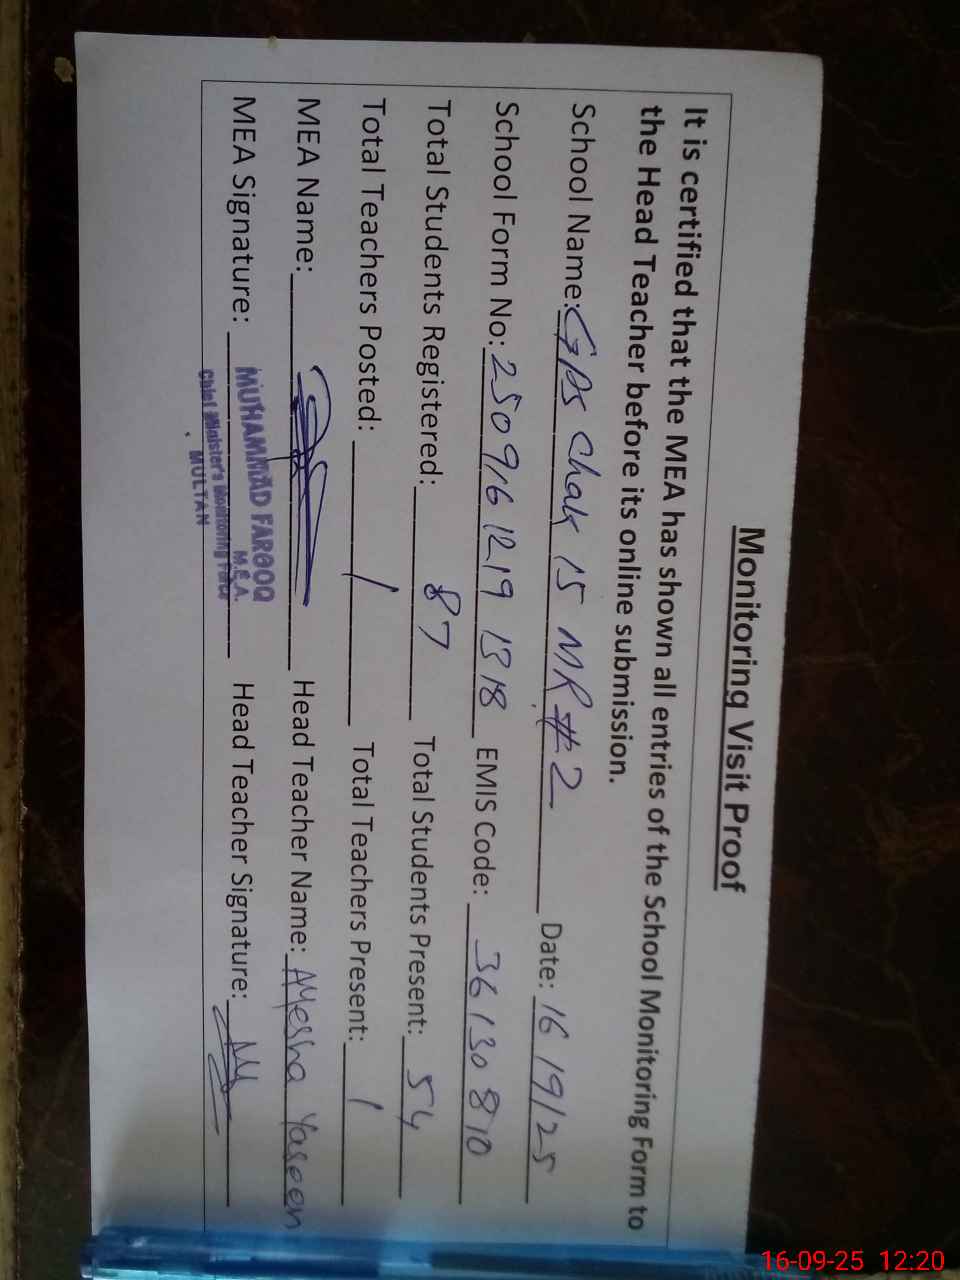 Monitoring Visit Proof
It is certified that the MEA has shown all entries of the School Monitoring Form to
the Head Teacher before its online submission.
School Name: GPS Chak 15 MR #2 Date: 16/9/25
School Form No: 250916 1219 1318 EMIS Code: 36130810
Total Students Registered: 87 Total Students Present: 54
Total Teachers Posted: 1 Total Teachers Present: 1
MEA Name: Head Teacher Name: Ayesha Yaseen
MEA Signature: Head Teacher Signature:
MUHAMMAD FAROOQ
M.E.A.
Chief Minister's Monitoring Force
MULTAN
16-09-25 12:20